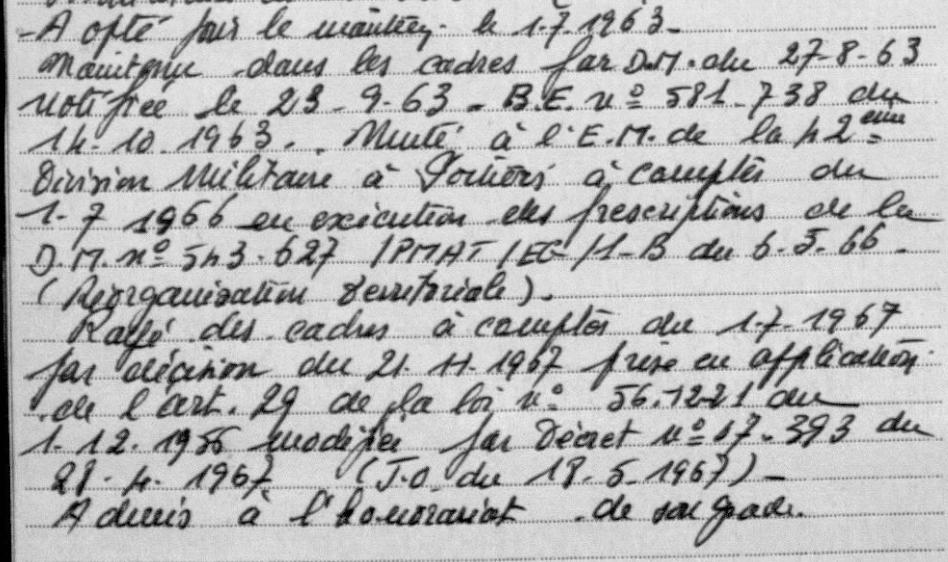 - A opté pour le maintien le 1.7.1963 -
Maintenu dans les cadres par D.M. du 27-8-63
notifiée le 23-9-63. B.E. nº 581.738 du
14.10.1963. Muté à l'E.M. de la 42ème
Division Militaire à Poitiers à compter du
1.7 1966 en exécution des prescriptions de la
D.M. nº 543.627 /PMAT/EG/1-B du 6.5.66.
(Réorganisation Territoriale).
Rayé des cadres à compter du 1.7.1967
par décision du 21.11.1967 prise en application
de l'art. 29 de la loi nº 56.1221 du
1.12.1956 modifiée par Décret nº 67.393 du
28.4.1967 (J.O. du 18.5.1967) -
Admis à l'honorariat de son grade.